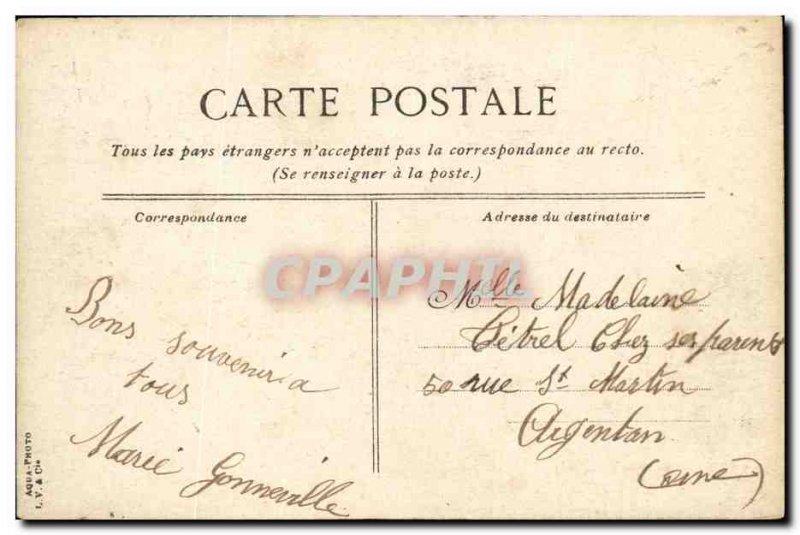 CARTE POSTALE
Tous les pays étrangers n'acceptent pas la correspondance au recto.
(Se renseigner à la poste.)
Correspondance
Bons souvenir a
tous
Marie Gonneville
Adresse du destinataire
Melle Madelaine
Pétrel Chez ses parents
50 rue St Martin
Argentan
(Orne)
AQUA-PHOTO
L. V. & Cie
CPAPHIL